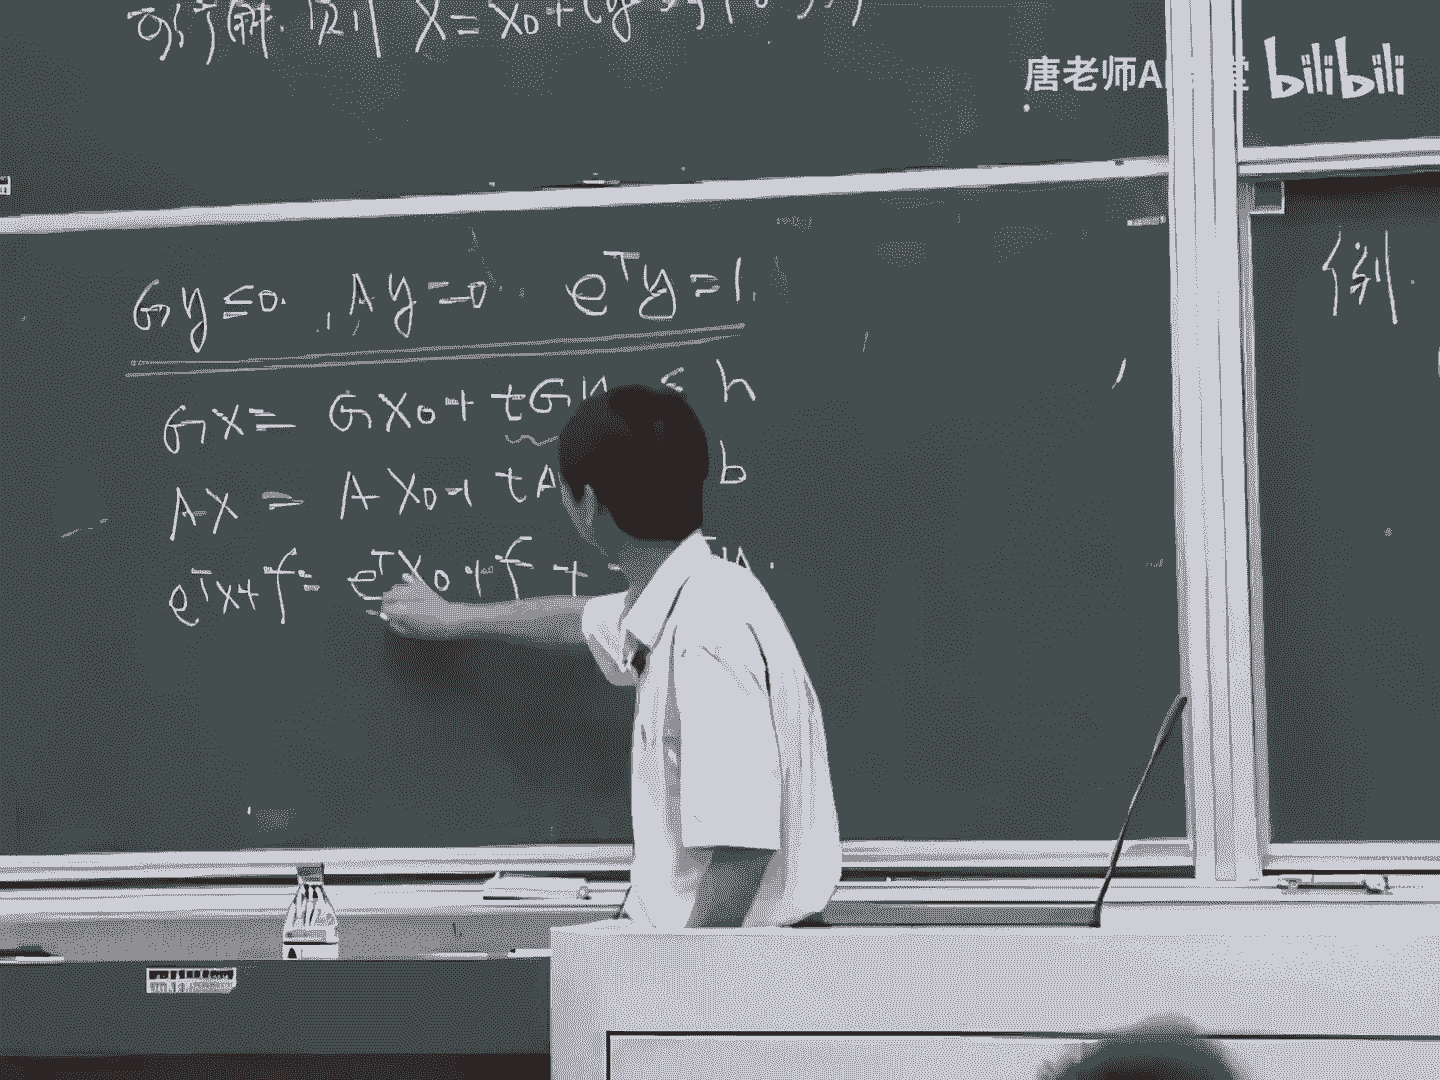 可行解. 则 X = X₀ +
唐老师A 堂 bilibili
Gy ≤ 0. , Ay = 0 . eᵀy = 1.
例.
GX = GX₀ + tG ≤ h
AX = AX₀ + tA b
eᵀX + f = eᵀX₀ + f +